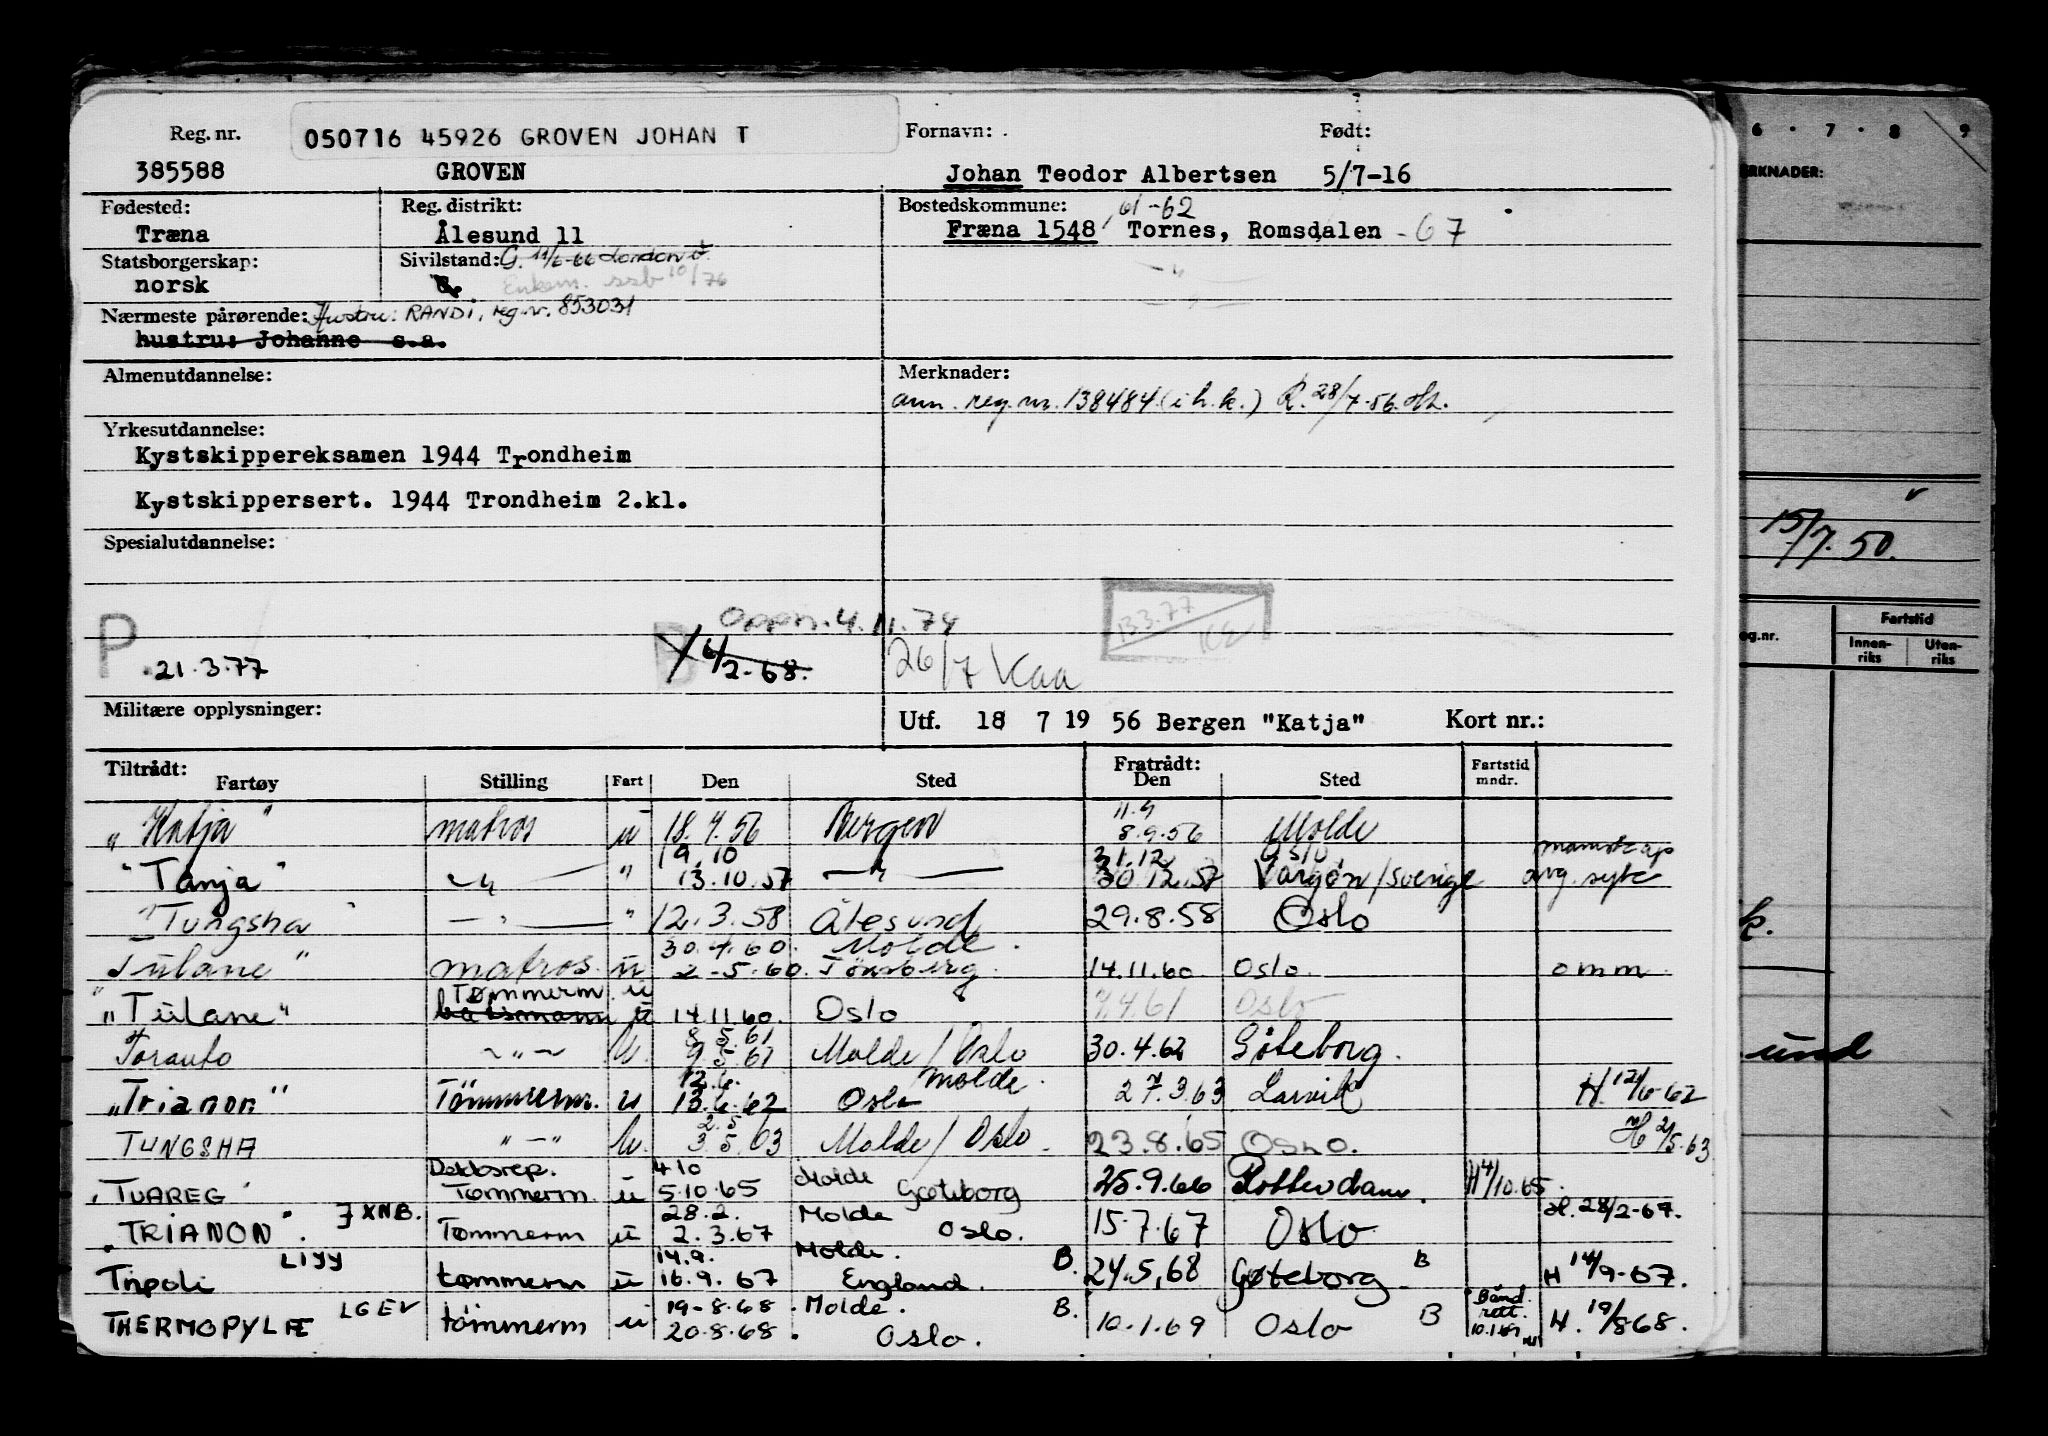 Reg. nr. 050716 45926 GROVEN JOHAN T Fornavn: Født:
385588 GROVEN Johan Teodor Albertsen 5/7-16
Fødested: Reg. distrikt: Bostedskommune: 61-62
Træna Ålesund 11 Fræna 1548 Tornes, Romsdalen -67
Statsborgerskap: Sivilstand: G. 11/6-66 London
norsk Enkem. ssb 10/76
Nærmeste pårørende: Hustru: RANDI, reg.nr. 853031
hustru: Johanne s.a.
Almenutdannelse: Merknader:
ann. reg. nr. 138484 (i h.k.) R. 28/7-56.
Yrkesutdannelse:
Kystskippereksamen 1944 Trondheim
Kystskippersert. 1944 Trondheim 2.kl.
Spesialutdannelse:
Oppn. 4.11.74 13.3.77
P 21.3.77 B 6/2-68. 26/7 Kaa
Militære opplysninger: Utf. 18 7 19 56 Bergen "Katja" Kort nr.:
Tiltrådt: Fratrådt: Fartstid
Fartøy Stilling Fart Den Sted Den Sted mndr.
11.9
"Katja" matros u 18.7.56 Bergen 8.9.56 Molde
9.10 31.12 Oslo mannskap
"Tanja" — " — " 13.10.57 — " — 30.12.57 Vargön/Sverige avg. syke
"Tungsha" — " — " 12.3.58 Ålesund 29.8.58 Oslo
30.4.60. Molde
Tulane" matros ü 2-5.60. Tönsberg. 14.11.60 Oslo. omm
Tømmerm ü
"Tulane" båtsmann ü 14.11.60. Oslo 7.4.61 Oslo
8.5.61
Toranto — " — U. 9.5.61 Molde/Oslo 30.4.62 Göteborg.
12.6. Molde.
"Trianon" Tömmerm. u 13.6.62 Oslo 27.3.63 Larvik H. 12/6-62
2.5
TUNGSHA " — " U. 3.5.63 Molde/Oslo. 23.8.65 OSLO. H 2/5.63
Dekksrep. 4 10 Molde
"TUAREG" Tømmerm. ü 5.10.65 Gøteborg 25.9.66 Rotterdam. H 4/10.65.
JXNB. 28.2. Molde H. 28/2-67.
"TRIANON". Tømmerm ü 2.3.67 Oslo. 15.7.67 Oslo
LIYY 14.9. Molde. B. B
Tripoli tømmerm ü 16.9.67 England. 24.5.68 Gøteborg H 14/9-67.
LGEV 19-8.68. Molde. B. B Bånd rett. 10.1.69
THERMOPYLÆ tömmerm ü 20.8.68. Oslo. 10.1.69 Oslo H. 19/8 68.
6 · 7 · 8 9
RKNADER:
15/7.50.
Fartstid
g.nr. Innenriks Utenriks
k.
und